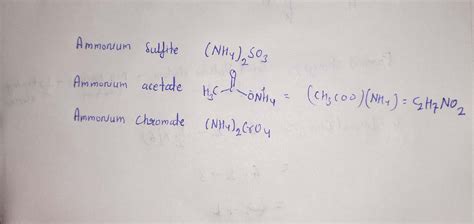 Ammonium Sulfite (NH4)2SO3
O
Ammonium acetate H3C ONH4 = (CH3COO)(NH4) = C2H7NO2
Ammonium Chromate (NH4)2CrO4